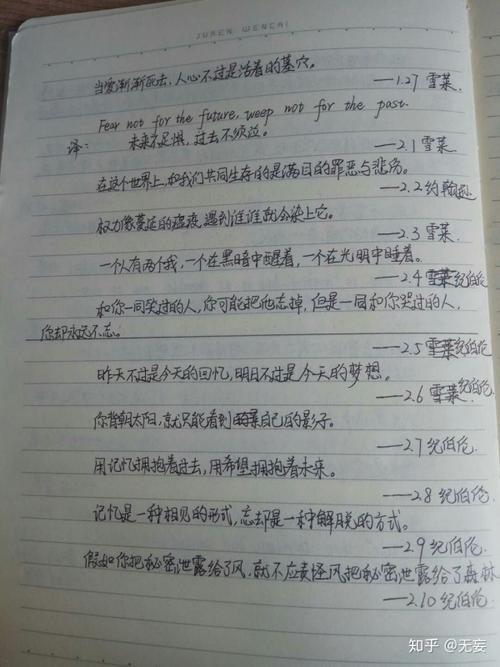 JUREN WENCAI
当爱渐渐死去,人心不过是活着的墓穴。
——1.27 雪莱.
Fear not for the future, weep not for the past.
译: 未来不足惧,过去不须泣。
——2.1 雪莱.
在这个世界上,和我们共同生存的是满目的罪恶与悲伤。
——2.2 约翰逊
权力像蔓延的瘟疫,遇到谁谁就会染上它。
——2.3 雪莱.
一个人有两个我,一个在黑暗中醒着,一个在光明中睡着。
——2.4 雪莱纪伯伦
和你一同笑过的人,你可能把他忘掉,但是一同和你哭过的人,
你却永远不忘。
——2.5 雪莱纪伯伦
昨天不过是今天的回忆,明日不过是今天的梦想。
——2.6 雪莱纪伯伦
你背朝太阳,就只能看到自己的影子。
——2.7 纪伯伦
用记忆拥抱着过去,用希望拥抱着未来。
——2.8 纪伯伦
记忆是一种相见的形式,忘却是一种解脱的方式。
——2.9 纪伯伦
假如你把秘密泄露给了风,就不应责怪风把秘密泄露给了森林
——2.10 纪伯伦
知乎 @无妄